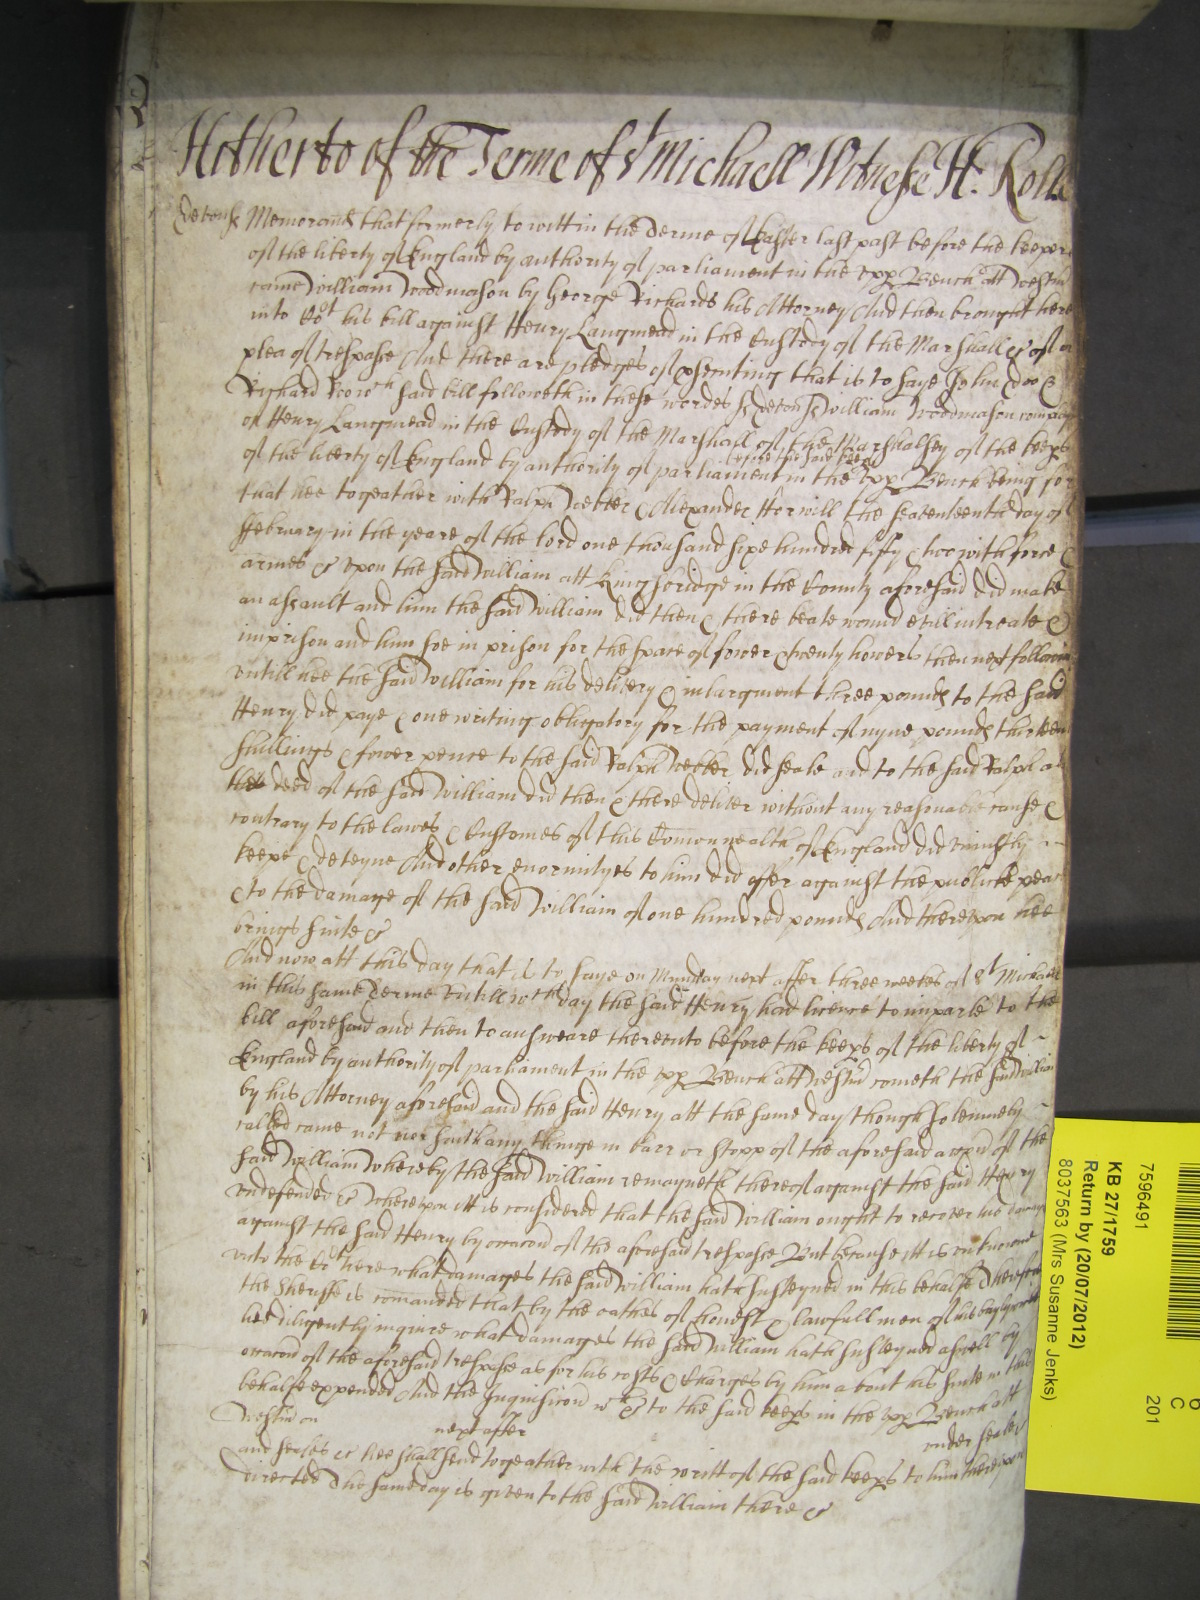 Hitherto of the Terme of st Michaell Witnesse H: Rolle
Devons Memorand that formerly to witt in the Terme of Easter last past before the keepers
of the liberty of England by authority of parliament in the upp Bench att Westm
came William Woodmason by George Richards his Attorney And then brought here
into Cot his bill against Henry Langmead in the Custody of the Marshall &c of a
plea of trespasse And there are pledges of psecuting that is to saye John doo &
Richard Roo wch said bill followeth in these wordes ss devon ss William Woodmason complaynes
of Henry Langmead in the Custody of the Marshall of the Marshalsey of the keeps
of the liberty of England by authority of parliament in the upp Bench being for
before the said keeps
that hee togeather with Ralph Weeker & Alexander Horwill the seaventeenth day of
ffebruary in the yeare of the lord one thousand sixe hundred fifty & two with force &
armes &c upon the said William att Kingsbridge in the County aforesaid did make
an assault and him the said William did then & there beate wound evill intreate &
imprison and him soe in prison for the space of fower & twenty howers then next following
untill hee the said William for his delivery & inlargment three pounds to the said
Henry did paye & one writing obligatory for the payment of nyne pounds thirteen
shillings & fower pence to the said Ralph Weeker did seale and to the said Ralph as
the deed of the said William did then & there deliver without any reasonable cause &
contrary to the lawes & Customes of this Comonwealth of England did uniustly
keepe & deteyne And other enormityes to him did offer against the publicke peace
& to the damage of the said William of one hundred pounds And thereupon hee
brings suite &c
And now att this day that is to saye on Munday next after three weekes of st Michaell
in this same Terme Untill wch day the said Henry had licence to imparle to the
bill aforesaid and then to answeare thereunto before the keeps of the liberty of
England by authority of parliament in the upp Bench att Westm cometh the said William
by his Attorney aforesaid and the said Henry att the same day though solemnely
called came not nor saith any thinge in barr or stopp of the aforesaid accon of the
said William Whereby the said William remayneth thereof against the said Henry
undefended &c Whereupon itt is considered that the said William ought to recover his damages
against the said Henry by occacon of the aforesaid trespasse But because itt is unknowne
unto the Ct here what damages the said William hath susteyned in this behalfe Therefore
the Sheriffe is comanded that by the oathes of honest & lawfull men of his baylywicke
hee diligently inquire what damages the said William hath susteyned aswell by
occacon of the aforesaid trespasse as for his costs & Charges by him about his suite in this
behalfe expended And the Inquisicon wch &c to the said keeps in the upp Bench att
Westm on next after under seale
and seales &c hee shall send togeather with the writt of the said keeps to him thereupon
directed The same day is given to the said William there &c
7596491
KB 27/1759
Return by (20/07/2012)
8037563 (Mrs Susanne Jenks)
C
201